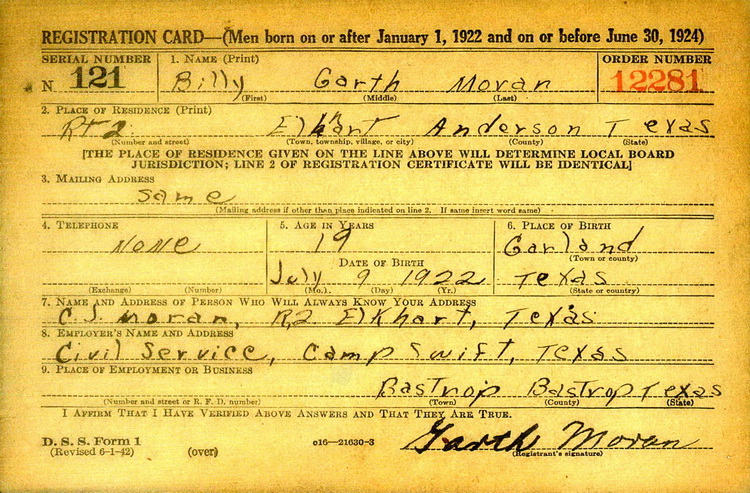 REGISTRATION CARD—(Men born on or after January 1, 1922 and on or before June 30, 1924)
SERIAL NUMBER 1. NAME (Print) ORDER NUMBER
N 121 Billy Garth Moran 12281
(First) (Middle) (Last)
2. PLACE OF RESIDENCE (Print)
Rt 2 Elkhart Anderson Texas
(Number and street) (Town, township, village, or city) (County) (State)
[THE PLACE OF RESIDENCE GIVEN ON THE LINE ABOVE WILL DETERMINE LOCAL BOARD
JURISDICTION; LINE 2 OF REGISTRATION CERTIFICATE WILL BE IDENTICAL]
3. MAILING ADDRESS
Same
(Mailing address if other than place indicated on line 2. If same insert word same)
4. TELEPHONE 5. AGE IN YEARS 6. PLACE OF BIRTH
None 19 Garland
(Town or county)
DATE OF BIRTH
July 9 1922 Texas
(Exchange) (Number) (Mo.) (Day) (Yr.) (State or country)
7. NAME AND ADDRESS OF PERSON WHO WILL ALWAYS KNOW YOUR ADDRESS
C.J. Moran, R,2 Elkhart, Texas
8. EMPLOYER'S NAME AND ADDRESS
Civil Service, Camp Swift, Texas
9. PLACE OF EMPLOYMENT OR BUSINESS
Bastrop Bastrop Texas
(Number and street or R. F. D. number) (Town) (County) (State)
I AFFIRM THAT I HAVE VERIFIED ABOVE ANSWERS AND THAT THEY ARE TRUE.
D. S. S. Form 1
(Revised 6-1-42) (over) o16—21630-3 Garth Moran
(Registrant's signature)